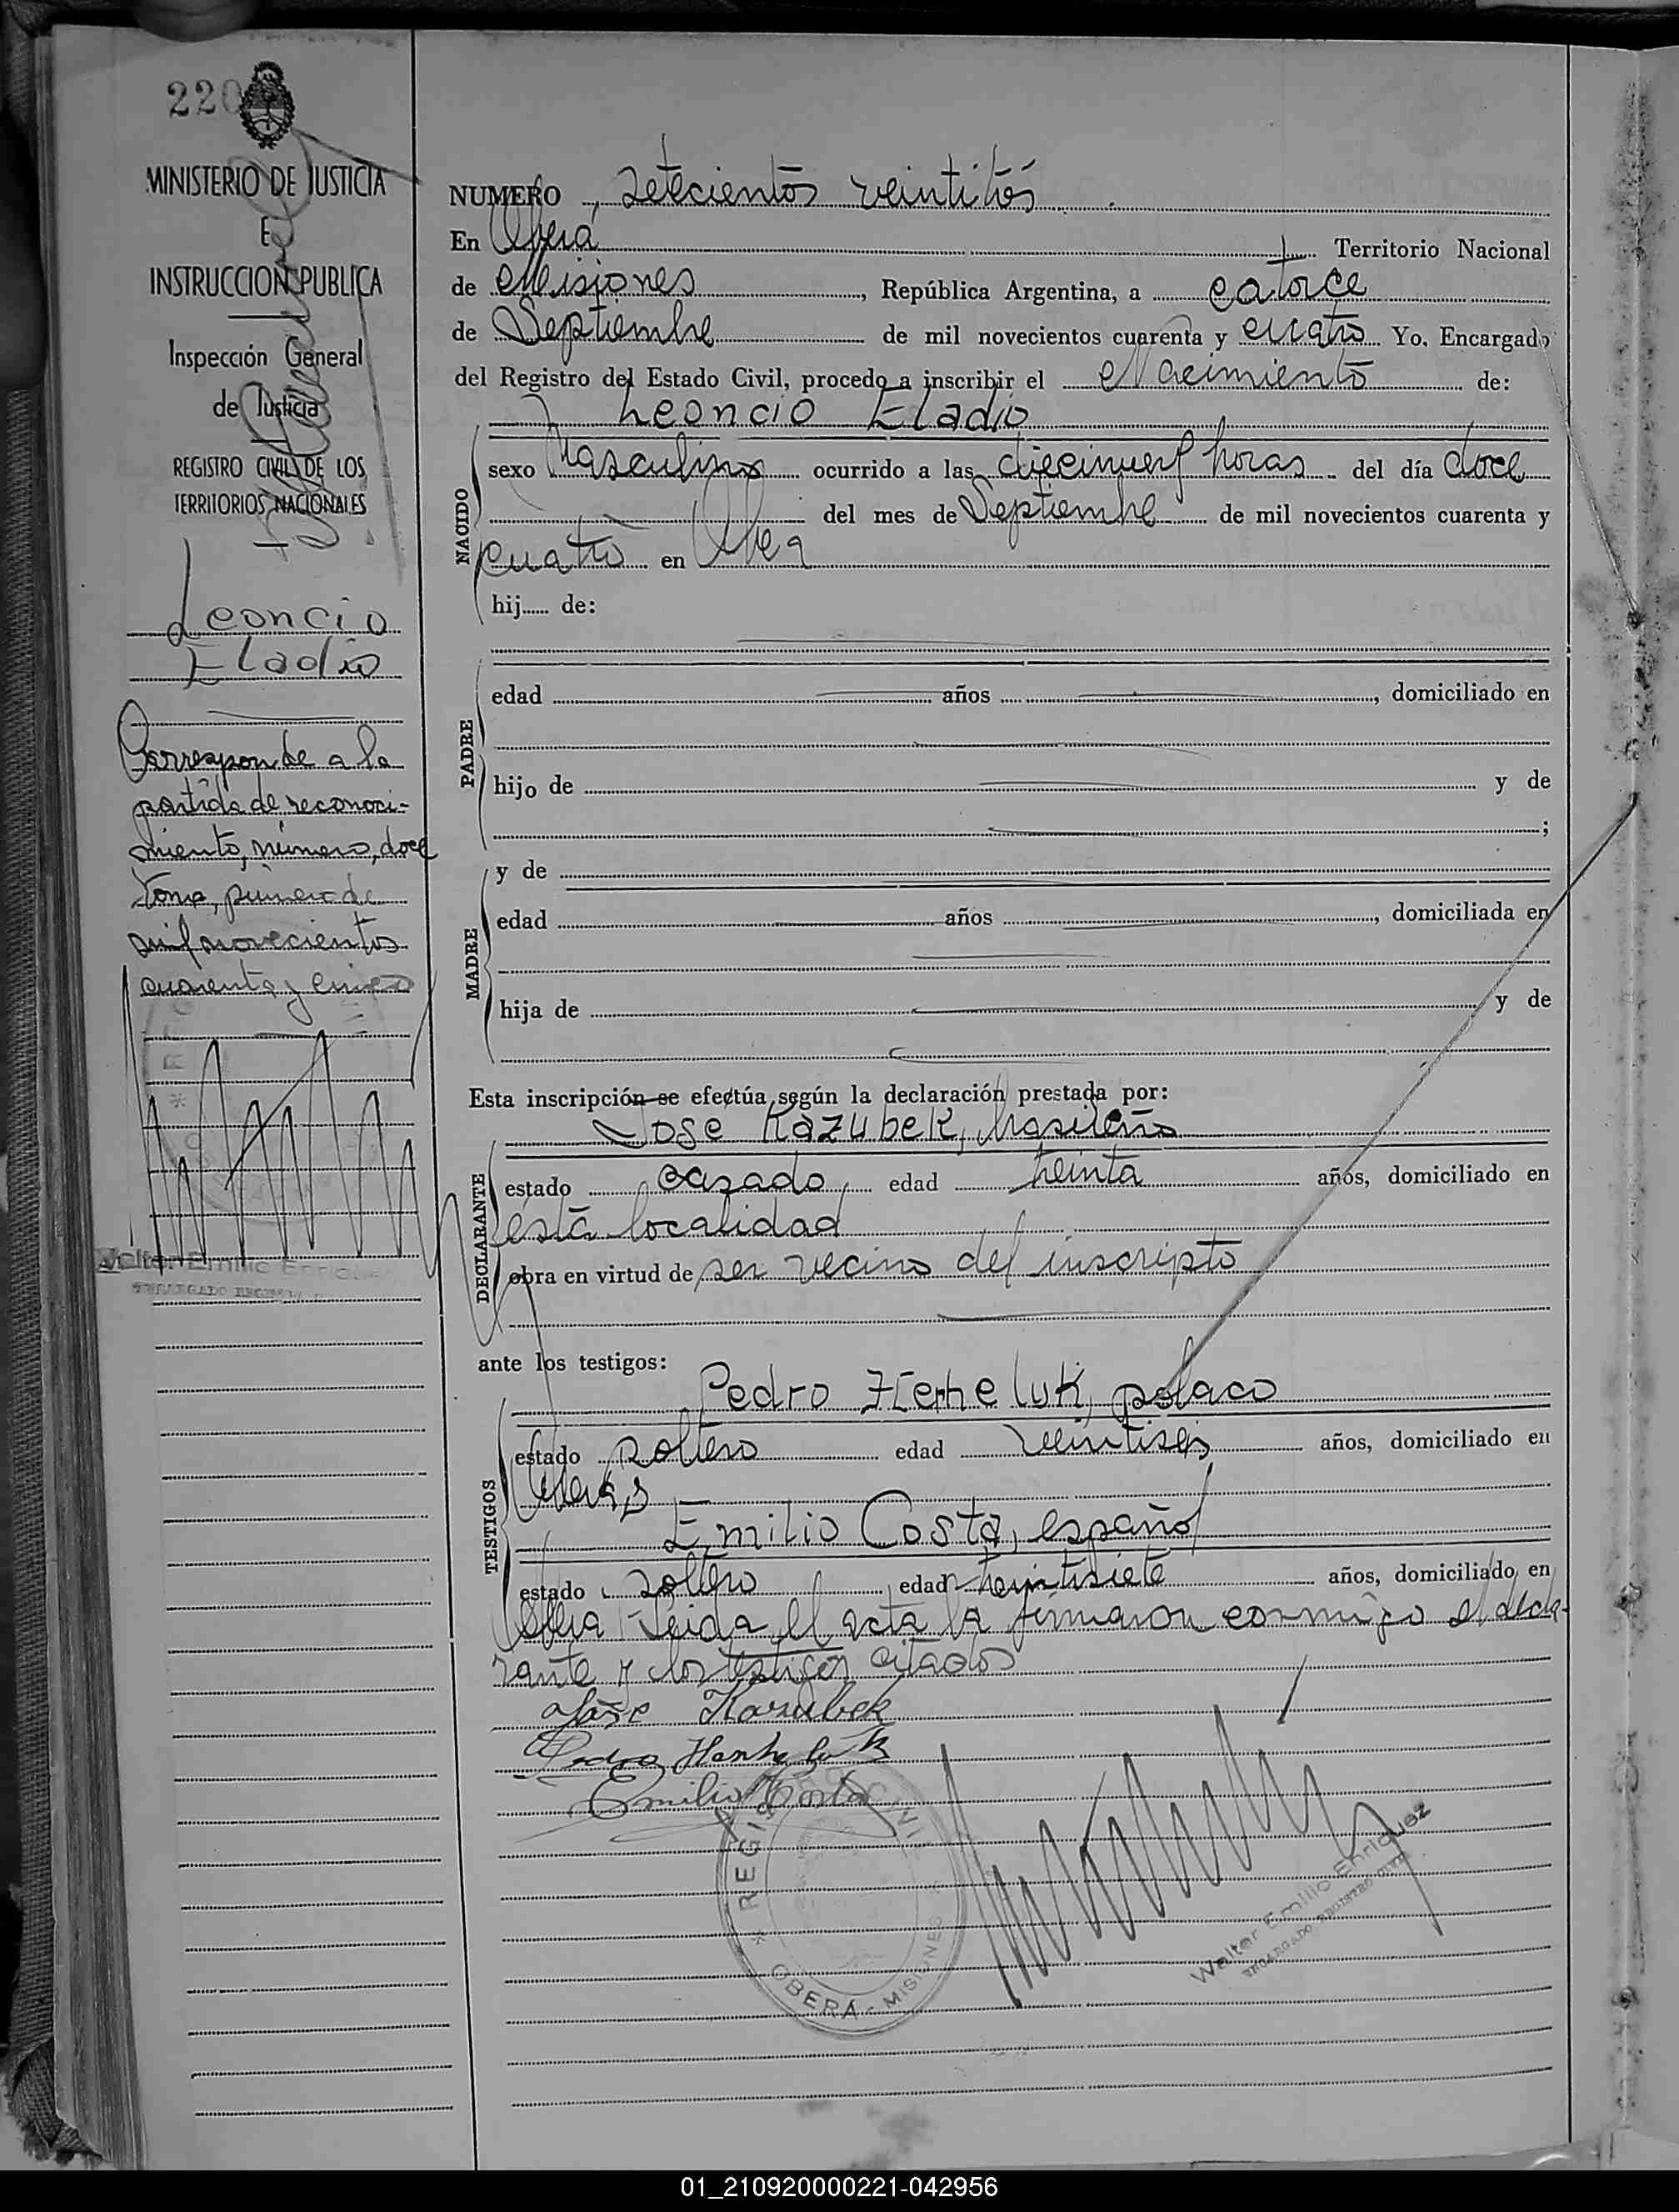 220
MINISTERIO DE JUSTICIA
E
INSTRUCCION PUBLICA
Inspección General
de Justicia
REGISTRO CIVIL DE LOS
TERRITORIOS NACIONALES
Leoncio
Eladio
Corresponde a la
partida de reconoci-
miento, número, doce
tomo, primero de
mil novecientos
cuarenta y cinco
Walter Emilio Enriquez
ENCARGADO REGISTRO
NUMERO setecientos veintitrés
En Oberá, Territorio Nacional
de Misiones, República Argentina, a catorce
de Septiembre de mil novecientos cuarenta y cuatro Yo, Encargado
del Registro del Estado Civil, procedo a inscribir el Nacimiento de:
Leoncio Eladio
NACIDO
sexo Masculino ocurrido a las diecinueve horas del día doce
del mes de Septiembre de mil novecientos cuarenta y
cuatro en Oberá
hij...... de:
PADRE
edad años , domiciliado en
hijo de y de
;
MADRE
y de
edad años , domiciliada en
hija de y de
Esta inscripción se efectúa según la declaración prestada por:
DECLARANTE
Jose Kazubek, brasileño
estado casado, edad treinta años, domiciliado en
esta localidad
obra en virtud de ser vecino del inscripto
ante los testigos:
TESTIGOS
Pedro polaco
estado soltero edad veintiseis años, domiciliado en
Oberá y
Emilio Costa, español
estado soltero edad treintisiete años, domiciliado en
Oberá Leida el acta la firmaron conmigo el decla-
rante y los testigos citados
José Kazubek
Pedro
Emilio Costa
REGISTRO CIVIL
OBERÁ - MISIONES
Walter Emilio Enriquez
ENCARGADO REGISTRO CIVIL
01_210920000221-042956